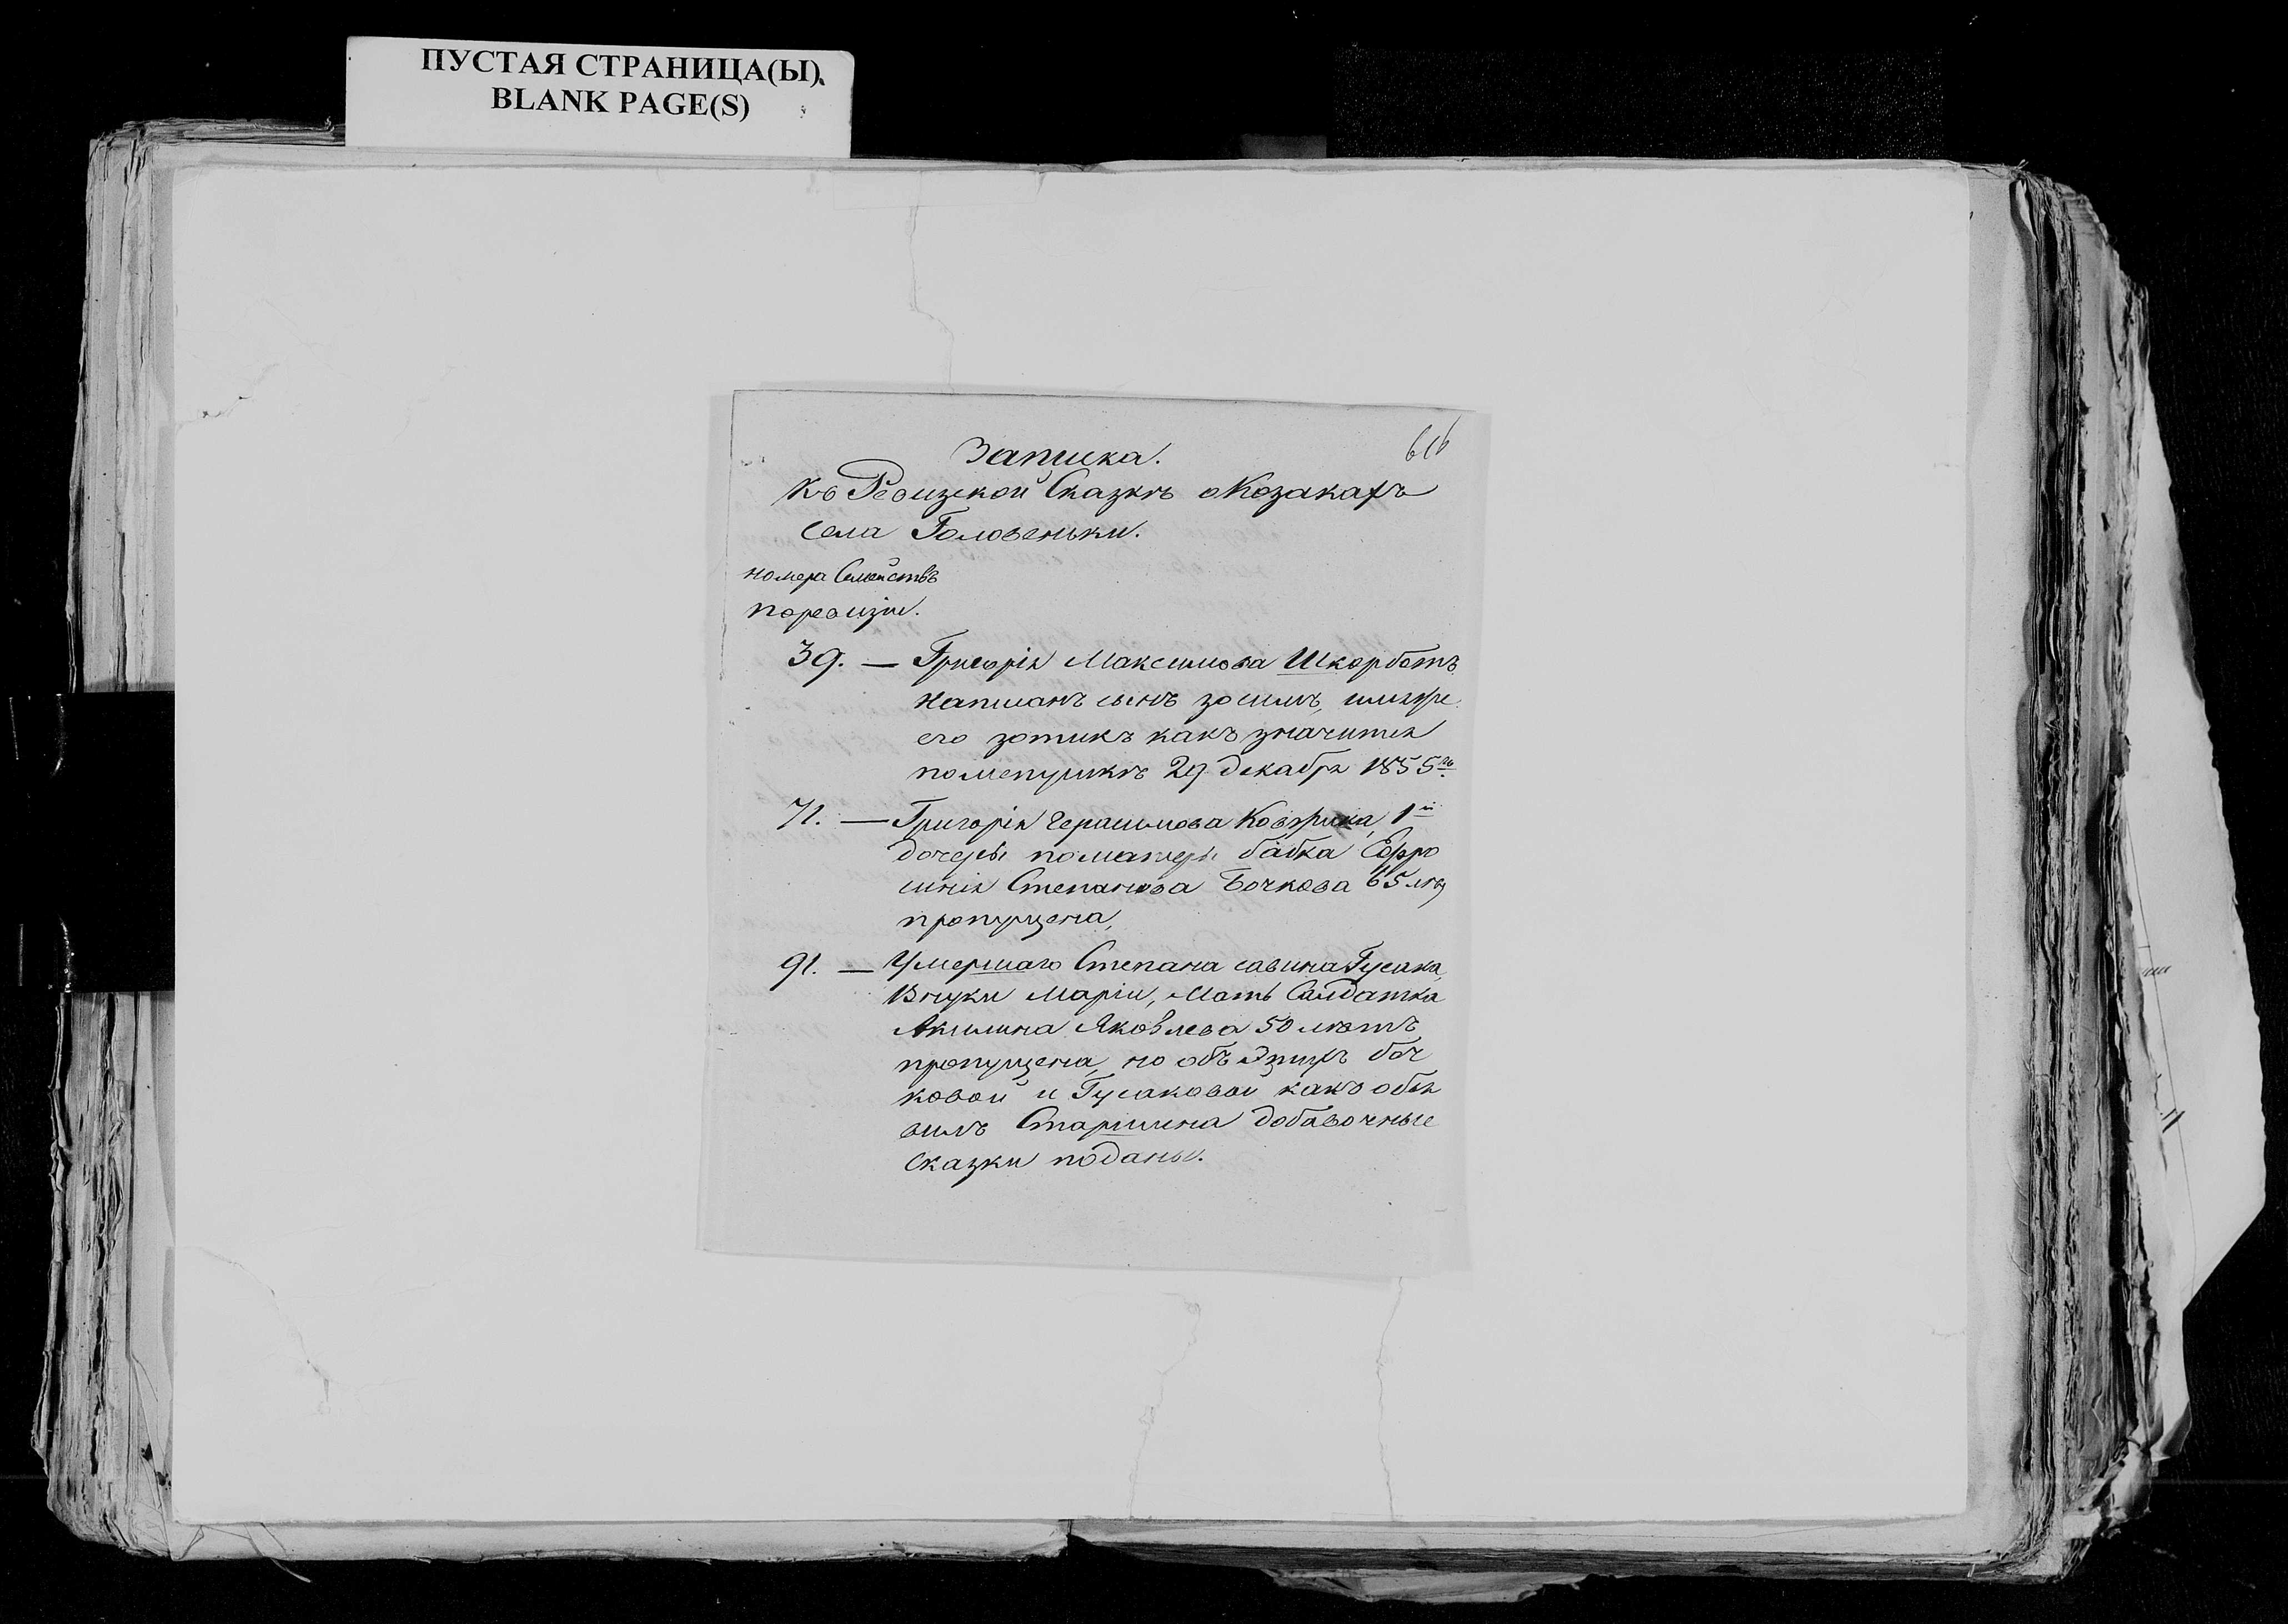 ПУСТАЯ СТРАНИЦА(Ы)
BLANK PAGE(S)
616
Записка.
Къ Ревизской Сказкѣ о Козакахъ
села Головеньки.
номера Семействъ
по ревизіи.
39. — Григорія Максимова Шкорботъ
написанъ сынъ зосимъ, имя же
его зотикъ какъ значится
по метрикѣ 29 декабря 1855го
71. — Григорія Герасимова 1й
дочеры по матеры бабка Евфро
синія Степанова Бочкова 65 лѣт
пропущена,
91. — Умершаго Степана савина Гусака,
Внуки Маріи, Мать Салдатка
Акилина Яковлева 50 лѣтъ
пропущена, но объ Этихъ боч
ковой и Гусаковой какъ объя
вилъ Старшина добавочные
сказки поданы.